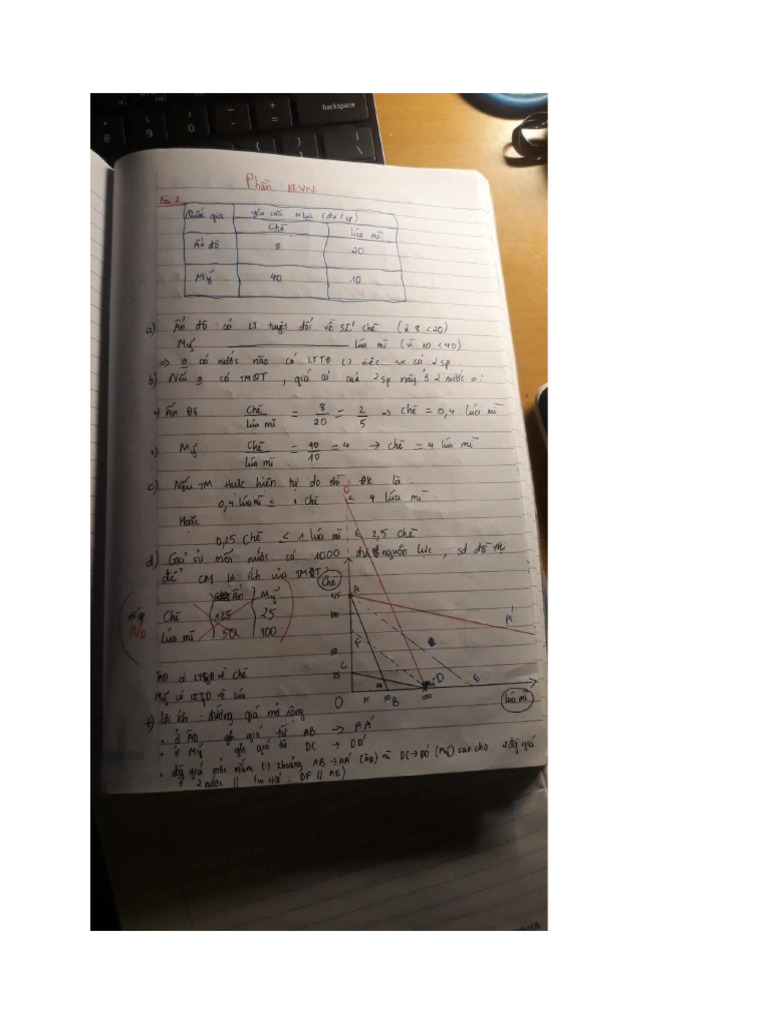 backspace
Phần BTVN
Bài 2
Quốc gia yêu cầu nlực (đv/sp)
Chè lúa mì
Ấn độ 8 20
Mỹ 40 10
a) Ấn độ có LT tuyệt đối về SX chè (vì 8 < 20)
Mỹ lúa mì (vì 10 < 40)
⇒ ko có nước nào có LTTĐ (-) việc sx cả 2 sp
b) Nếu ko có TMQT, giá cả của 2 sp này ở 2 nước =:
+) Ấn Độ: Chè/lúa mì = 8/20 = 2/5 → chè = 0,4 lúa mì
+) Mỹ: Chè/lúa mì = 40/10 = 4 → chè = 4 lúa mì
c) Nếu TM thực hiện tự do thì ĐK là
0,4 lúa mì ≤ 1 chè ≤ 4 lúa mì
Hoặc
0,25 chè ≤ 1 lúa mì ≤ 2,5 chè
d) Giả sử mỗi nước có 1000 đv nguồn lực, sd đồ thị
để CM lợi ích của TMQT?
Ấn Mỹ
Chè 125 25
Lúa mì 50 100
NO
Chè
125 A
100
50 F
25 C
O 25 50 B 100 D E
lúa mì
ÂĐ có LTTĐ về chè
Mỹ có LTTĐ về lúa
+) Lợi ích: đường giá mở rộng
• ở ÂĐ: gh giá từ AB → AA'
• ở Mỹ: gh giá từ DC → DD'
• đg giá mới nằm (-) khoảng AB → AA' (ÂĐ) và DC → DD' (Mỹ) sao cho 2 đg giá
2 nước // : DF // AE)